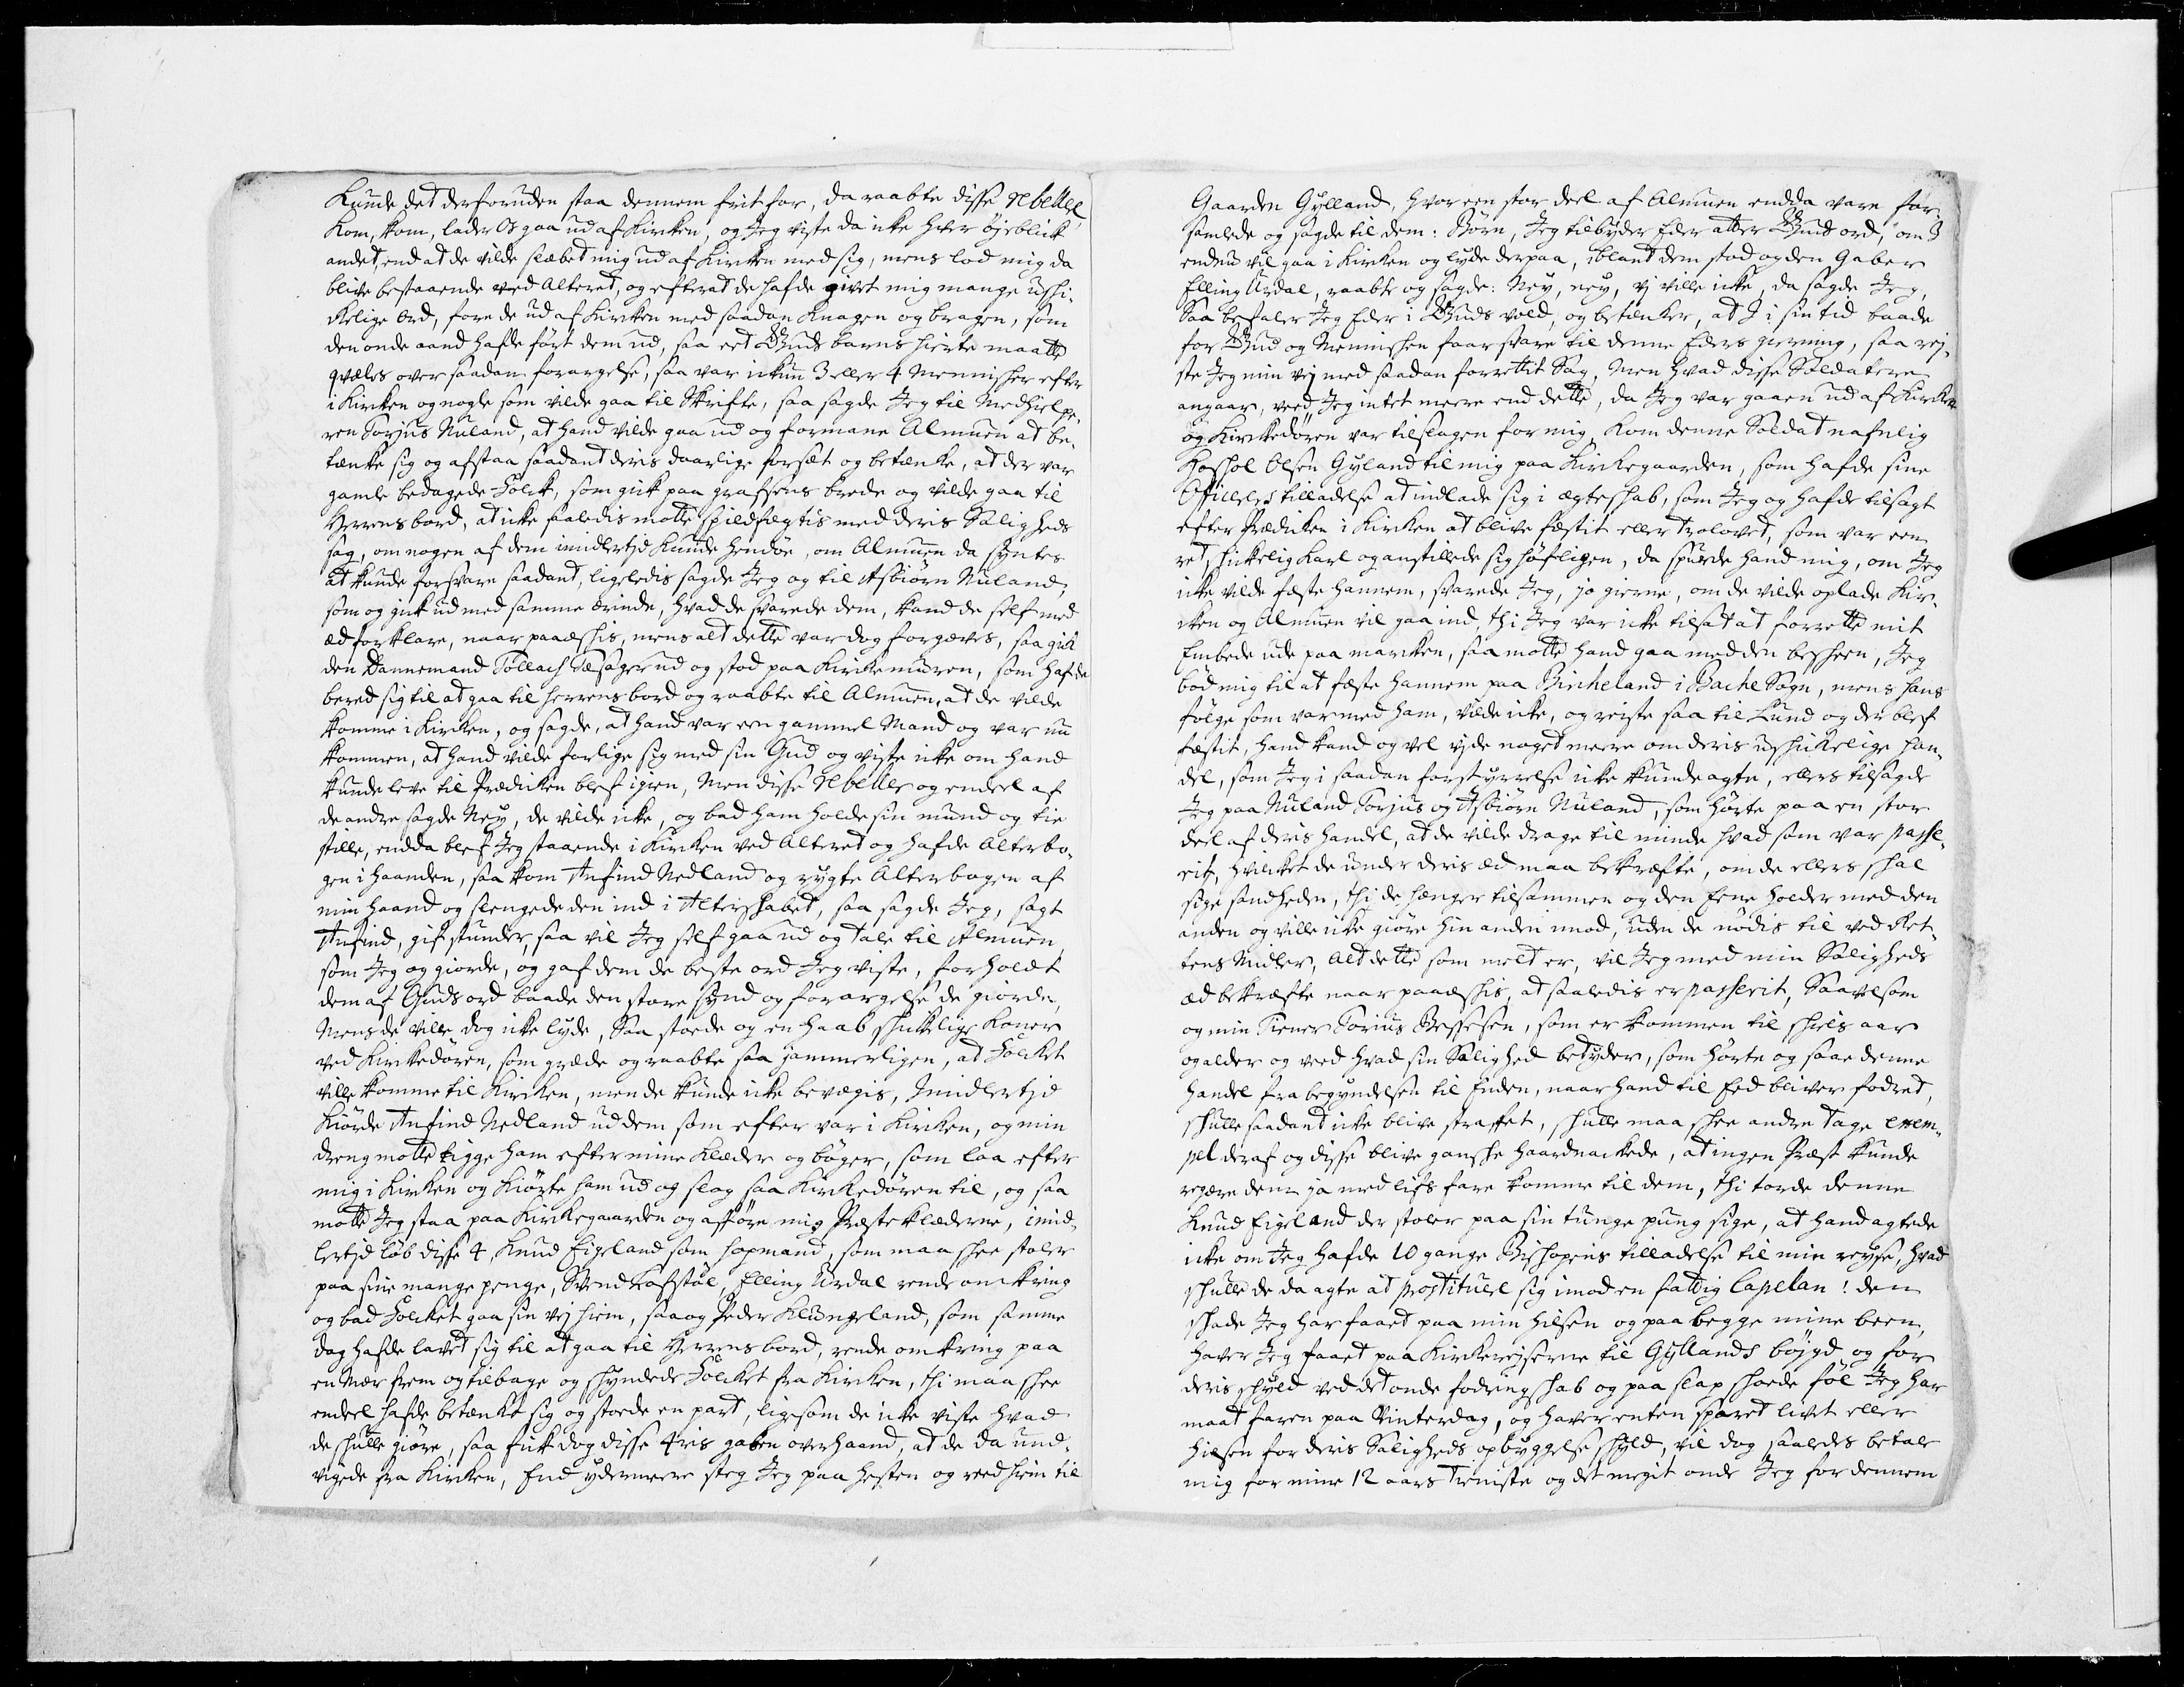 Kunde det desforuden staa dennem frit for, da raabte disse rebeller
Kom, kom, lader Os gaa ud af Kircken, og Jeg viste da icke hver øyeblick
andet, end at de vilde slæbet mig ud af Kircken med sig, mens lod mig da
blive bestaaende ved Alteret, og efter at de hafde givet mig mange uski-
ckelige Ord, fore de ud af Kircken med saadan Knagen og bragen, som
den onde aand hafde ført dem ud, saa eet Guds barns hierte maatte
qvæles over saadan forargelse, saa var ickun 3 eller 4 Mennisker efter
i Kircken og nogle som vilde gaa til Skrifte, saa sagde Jeg til Medhielpe-
ren Torjus Nuland, at hand vilde gaa ud og formane Almuen at be-
tænke sig og afstaa saadant deris daarlige forsæt og betænke, at der var
gamle bedagede Folck, som gick paa grafsens brede og vilde gaa til
Herrens bord, at icke saaledis motte spildfegtis med deris Saligheds
sag, om nogen af dem imidlertjd kunde hendøe, om Almuen da syntes
at kunde forsvare saadant, ligeledis sagde Jeg og til Asbiørn Nuland,
som og gick ud med samme ærinde, hvad de svarede dem, kand de self med
æd forklare, naar paaæskis, mens alt dette var dog forgæves, saa gick
den Dannemand Tollach Tesager ud og stod paa Kirkemuren, som hafde
bered sig til at gaa til Herrens bord og raabte til Almuen, at de vilde
komme i Kircken, og sagde, at hand var een gammel Mand og var nu
kommen, at hand vilde forlige sig med sin Gud og viste icke om hand
kunde leve til Prædicken blef igien, Men disse rebeller og endeel af
de andre sagde Ney, de vilde icke, og bad ham holde sin mund og tie
stille, endda blef Jeg staaende i Kircken ved Alteret og hafde Alterbo-
gen i haanden, saa kom Anfind Nedland og rygte Alterbogen af
min haand og slengede den ind i Alterskabet, saa sagde Jeg, sagt
Anfind, gif stunder, saa vil Jeg self gaa ud og tale til Almuen
som Jeg og giorde, og gaf dem de beste ord Jeg viste, forholdt
dem af Guds ord baade den store synd og forargelse de giorde,
Mens de ville dog icke lyde, Saa stoede og en haab skickelige Koner
ved Kirckedøren, som græde og raabte saa jammerligen, at Folcket
ville komme til Kircken, men de kunde icke bevægis, Imidlertjd
Kiørde Anfind Nedland ud dem som efter var i Kircken, og min
dreng motte tigge ham efter mine Klæder og bøger, som laa efter
mig i Kircken og Kiørte ham ud og slog saa Kirckedøren til, og saa
motte Jeg staa paa Kirckegaarden og afføre mig Præsteklæderne, imid-
lertjd løb disse 4, Knud Eigeland som hopmand, som maa skee stoler
paa sine mange penge, Svend Lofstøl, Elling Urdal rende omkring
og bad Folcket gaa sin vej hiem, saa og Peder Klungeland, som samme
dag hafde lavet sig til at gaa til Herrens bord, rende omkring paa
en Mær frem og tilbage og skyndede Folcket fra Kircken, thi maa skee
endeel hafde betænkt sig og stoede en part, ligesom de icke viste hvad
de skulle giøre, saa fick dog disse 4ris gaben overhaand, at de da und-
vigede fra Kircken, End ydermeere steg Jeg paa hesten og reed hiem til
Gaarden Gylland, hvor een stor deel af Almuen endda vare for-
samlede og sagde til dem: Børn, Jeg tilbyder Eder atter Guds ord, om I
endnu vil gaa i Kircken og lyde derpaa, iblant dem stod og den Gaber
Elling Urdal, raabte og sagde: Ney, ney, vj ville icke, da sagde Jeg,
Saa befaler Jeg Eder i Guds vold, og betænker, at I i sin tid baade
for Gud og Mennisken faar svare til denne Eders gierning, saa rej-
ste Jeg min vej med saadan forrettit Sag, Men hvad disse Soldatere
angaar, veed Jeg intet meere end dette, da Jeg var gaaen ud af Kircken
og Kirckedøren var tilslagen for mig, kom denne Soldat nafnlig
Hoskol Olsen Gyland til mig paa Kirckegaarden, som hafde sine
Officerers tilladelse at indlade sig i ægteskab, som Jeg og hafde tilsagt
efter Prædicken i Kircken at blive fæstit eller trolovet, som var een
ret skickelig Karl og anstillede sig høfligen, da spurde hand mig, om Jeg
icke vilde fæste hannem, svarede Jeg, jo gierne, om de vilde oplade Kir-
cken og Almuen vil gaa ind, thi Jeg var icke tilsat at forrette mit
Embede ude paa marcken, saa motte hand gaa med den beskeen, Jeg
bød mig til at fæste hannem paa Bircheland i Bache Sogn, mens hans
følge som var med ham, vilde icke, og reiste saa til Lund og der blef
fæstit, hand kand og vel vjde noget meere om deris uskickelige han-
del, som Jeg i saadan forstyrrelse icke kunde agte, ellers tilsagde
Jeg paa Nuland Torjus og Asbiørn Nuland, som hørte paa en stor
deel af deris handel, at de vilde drage til minde hvad som var passe-
rit, hvilcket de under deris æd maa bekræfte, om de ellers skal
sige sandheden, thi de henger tilsammen og den Eene holder med den
anden og ville icke giøre hin anden imod, uden de nødis til ved Ret-
tens Midler, Alt dette som melt er, vil Jeg med min Saligheds
æd bekræfte naar paaæskis, at saaledis er passerit, Saavelsom
og min Tiener Torius Bessesen, som er kommen til skiels aar
og alder og veed hvad sin Salighed betyder, som hørte og saae denne
handel fra begyndelsen til Enden, naar hand til Eed bliver fodret,
skulle saadant icke blive straffet, skulle maa skee andre tage exem-
pel deraf og disse blive ganske haardnackede, at ingen Præst kunde
regiere dem ja med lifs fare komme til dem, thi torde denne
Knud Eigeland der stoler paa sin tunge pung sige, at hand agtede
icke om Jeg hafde 10 gange Biskopens tilladelse til min reyse, hvad
skulle de da agte at prostituere sig imod en fattig Capelan! den
skade Jeg har faaet paa min hilsen og paa begge mine been,
haver Jeg faaet paa Kirckerejserne til Gyllands bøygd og for
deris skyld ved det onde fodringskab og paa slap skoede føl Jeg har
maat faren paa Vinterdag, og haver enten sparet livet eller
hilsen for deris Saligheds opbyggelse skyld, vil dog saaledes betale
mig for mine 12 aars tieniste og det megit onde Jeg for dennem